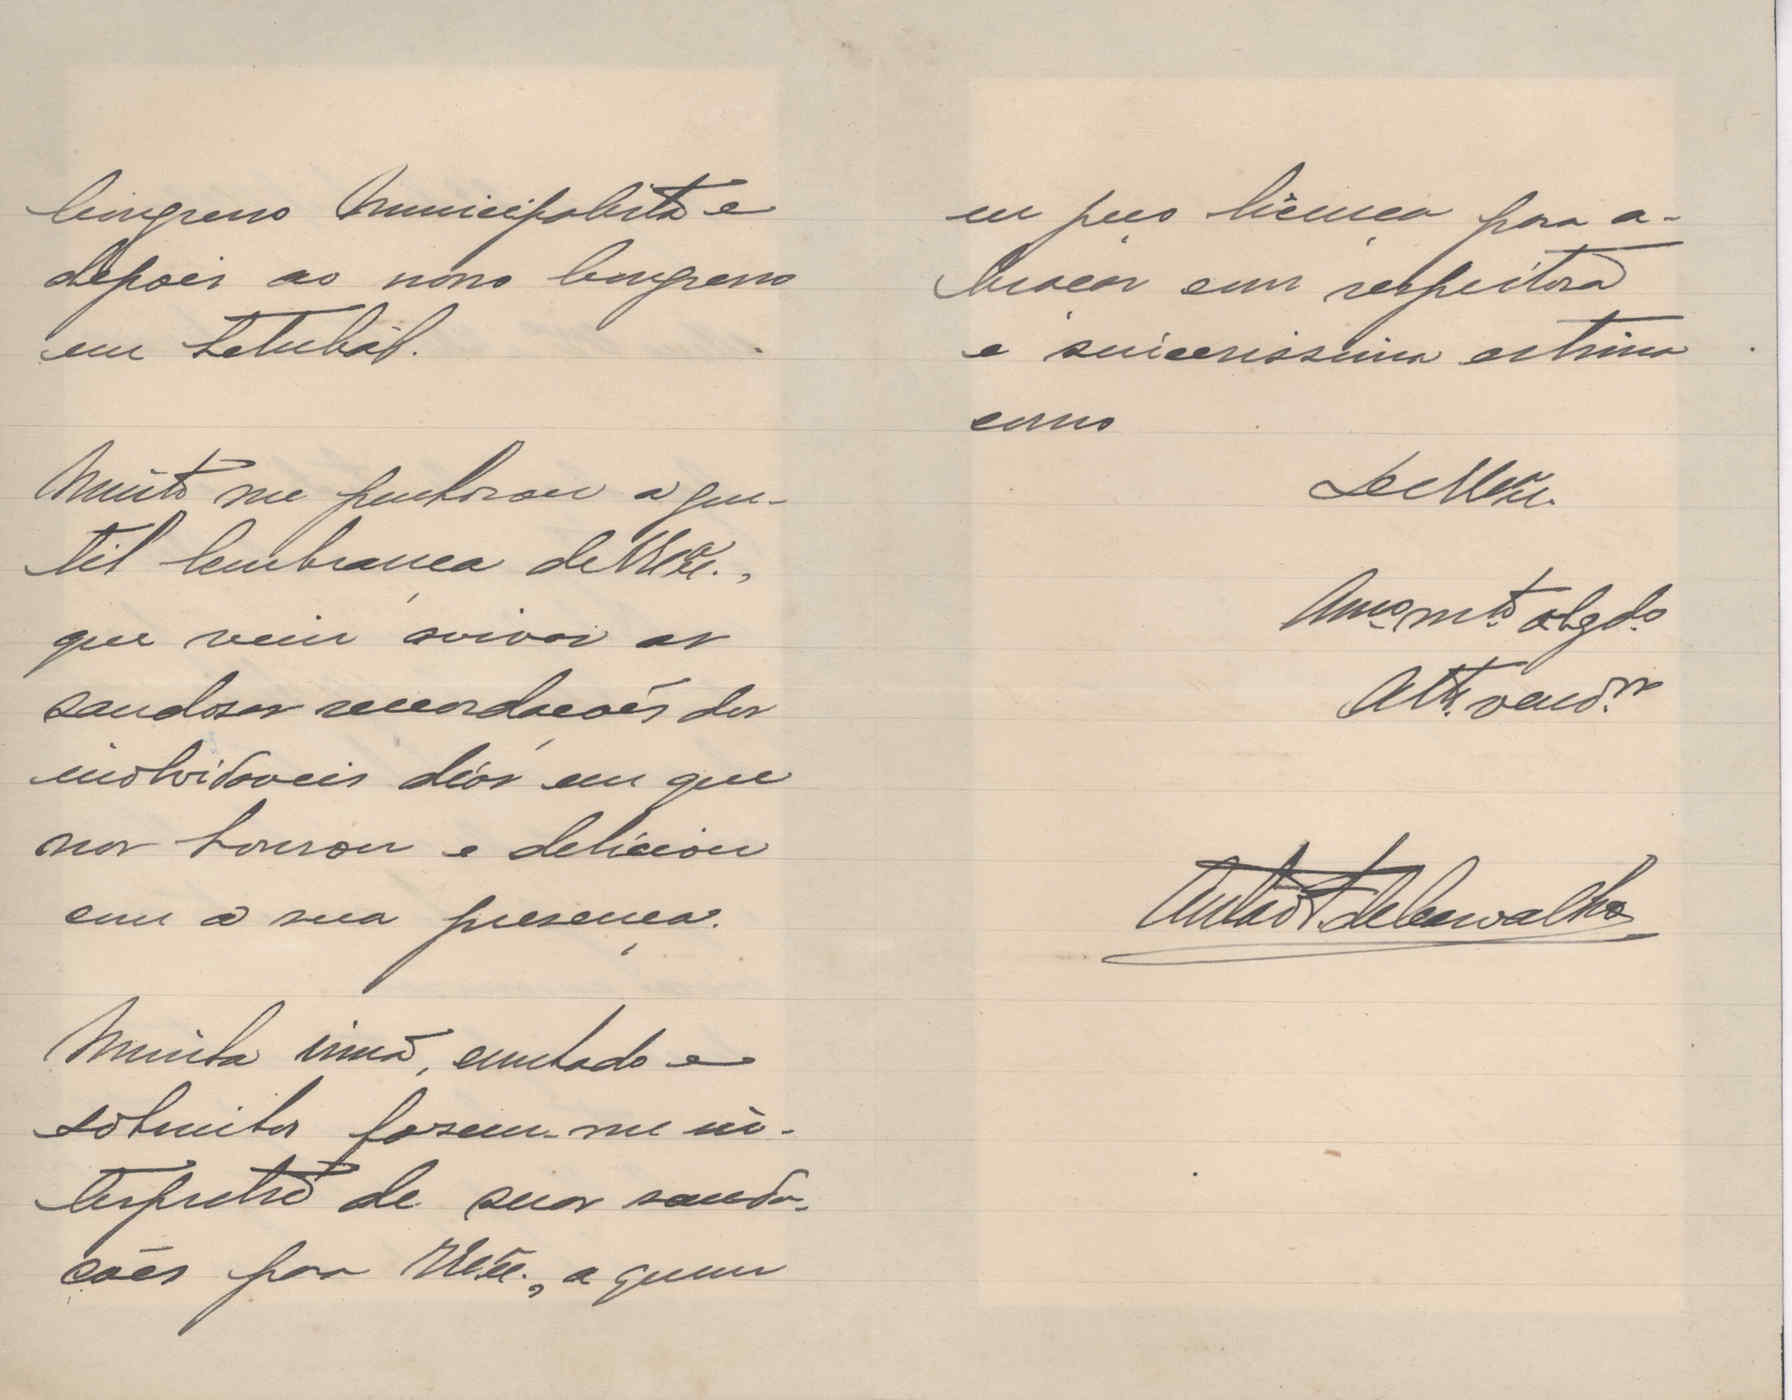 Congresso Municipalista e
depois ao nosso Congresso
em Setubál.
Muito me penhorou a gen-
til lembrança de V. Exª.,
que veiu avivar as
saudosas recordações dos
inolvidaveis dias em que
nos honrou e deliciou
com a sua presença.
Minha irmã, cunhado e
sobrinhos fazem-me in-
terprete de suas sauda-
ções para V. Exª., a quem
eu peço licença para a-
braçar com respeitosa
e sincerissima estima
como
De V. Exª.
Amº. mtº. obgdº.
Attº. vendºr
de Carvalho